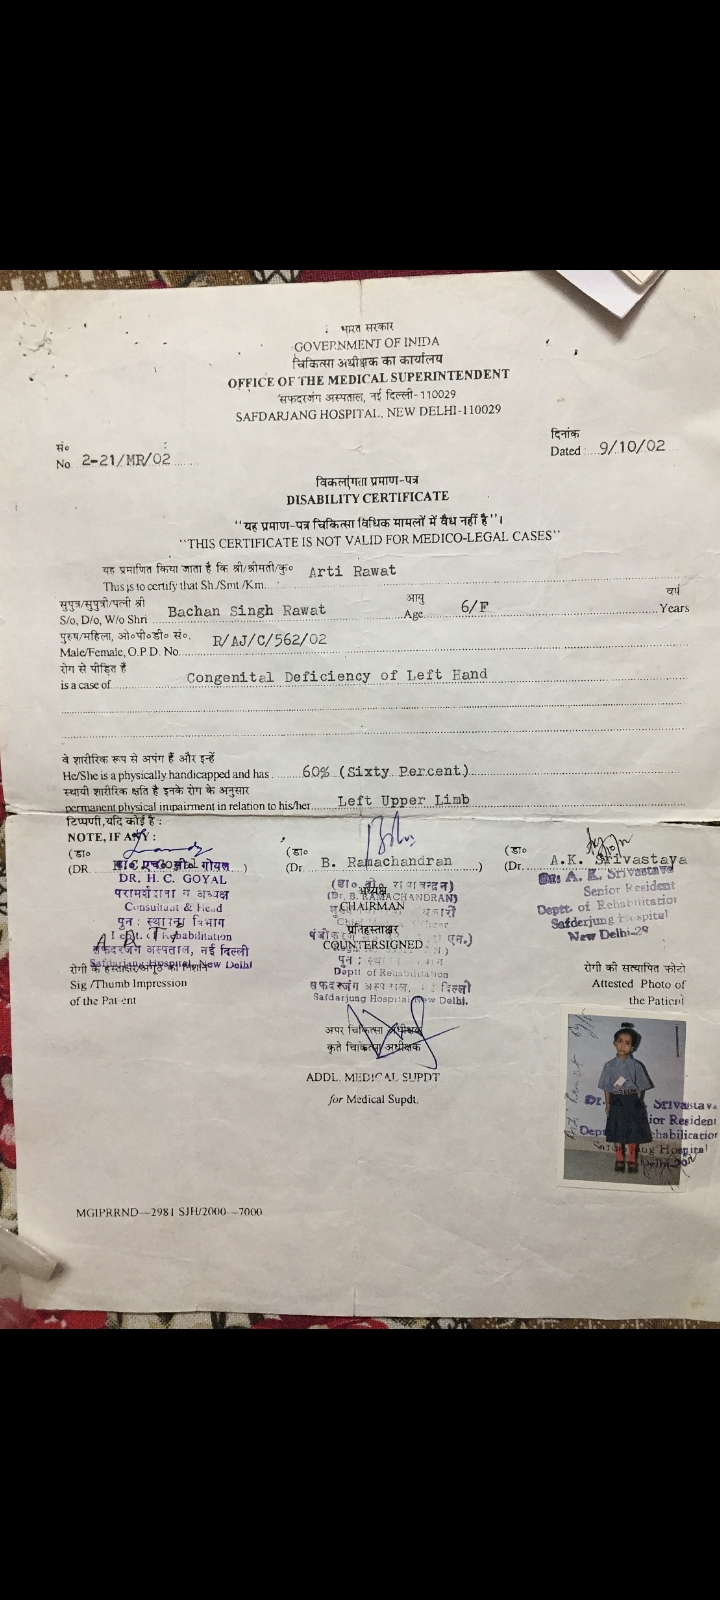 भारत सरकार
GOVERNMENT OF INIDA
चिकित्सा अधीक्षक का कार्यालय
OFFICE OF THE MEDICAL SUPERINTENDENT
सफदरजंग अस्पताल, नई दिल्ली-110029
SAFDARJANG HOSPITAL, NEW DELHI-110029
सं० दिनांक
No 2-21/MR/02 Dated 9/10/02
विकलांगता प्रमाण-पत्र
DISABILITY CERTIFICATE
"यह प्रमाण-पत्र चिकित्सा विधिक मामलों में वैध नहीं है"।
"THIS CERTIFICATE IS NOT VALID FOR MEDICO-LEGAL CASES"
यह प्रमाणित किया जाता है कि श्री/श्रीमती/कु० Arti Rawat
This is to certify that Sh./Smt./Km.
सुपुत्र/सुपुत्री/पत्नी श्री आयु वर्ष
S/o, D/o, W/o Shri Bachan Singh Rawat Age 6/F Years
पुरुष/महिला, ओ०पी०डी० सं०.
Male/Female, O.P.D. No. R/AJ/C/562/02
रोग से पीड़ित है
is a case of Congenital Deficiency of Left Hand
वे शारीरिक रूप से अपंग हैं और इन्हें
He/She is a physically handicapped and has 60% (Sixty Percent)
स्थायी शारीरिक क्षति है इनके रोग के अनुसार
permanent physical impairment in relation to his/her Left Upper Limb
टिप्पणी,यदि कोई है :
NOTE, IF ANY :
(डा० (डा० (डा०
(DR ) (Dr B. Ramachandran ) (Dr. A.K. Srivastava
डा० एच० सी० गोयल
DR. H. C. GOYAL
Consultant & Head
Rehabilitation
सफदरजंग अस्पताल, नई दिल्ली
Safdarjung Hospital, New Delhi
(Dr. B. RAMACHANDRAN)
अध्यक्ष
CHAIRMAN
प्रतिहस्ताक्षर
COUNTERSIGNED
Deptt of Rehabilitation
Safdarjung Hospital, New Delhi.
Dr. A. K. Srivastava
Senior Resident
Deptt. of Rehabilitation
Safderjung Hospital
New Delhi-29
Sig /Thumb Impression
of the Patient
रोगी की सत्यापित फोटो
Attested Photo of
the Patient
अपर चिकित्सा अधीक्षक
कृते चिकित्सा अधीक्षक
ADDL. MEDICAL SUPDT
for Medical Supdt.
Dr. A. K. Srivastava
Senior Resident
Rehabilitation
Safderjung Hospital
MGIPRRND—2981 SJH/2000—7000